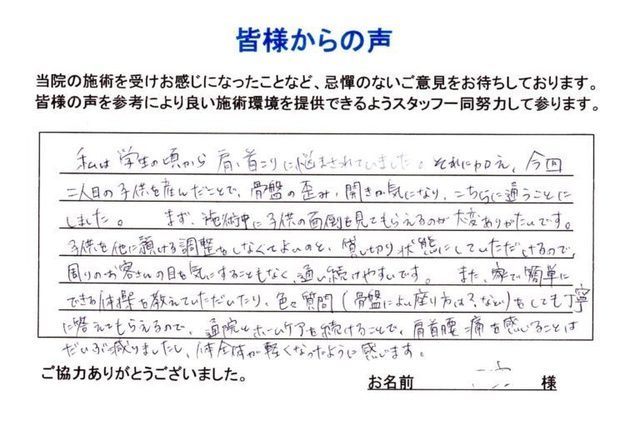 皆様からの声
当院の施術を受けお感じになったことなど、忌憚のないご意見をお待ちしております。
皆様の声を参考により良い施術環境を提供できるようスタッフ一同努力して参ります。
私は学生の頃から肩・首こりに悩まされていました。それに加え、今回
二人目の子供を産んだことで、骨盤の歪み・開きが気になり、こちらに通うことに
しました。 まず、施術中に子供の面倒を見てもらえるのが大変ありがたいです。
子供を他に預ける調整をしなくてよいのと、貸し切り状態にしていただけるので、
周りのお客さんの目を気にすることもなく、通い続けやすいです。 また、家で簡単に
できる体操を教えていただいたり、色々質問(骨盤によい座り方は?など)をしても丁寧
に答えてもらえるので、通院とホームケアを続けることで、肩首腰痛を感じることは
だいぶ減りましたし、体全体が軽くなったように感じます。
ご協力ありがとうございました。
お名前 様